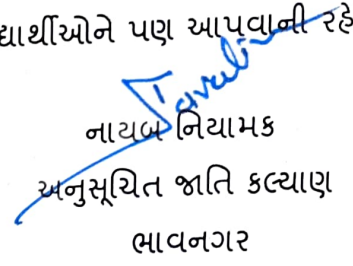 દ્યાર્થીઓને પણ આપવાની રહે
નાયબ નિયામક
અનુસૂચિત જાતિ કલ્યાણ
ભાવનગર